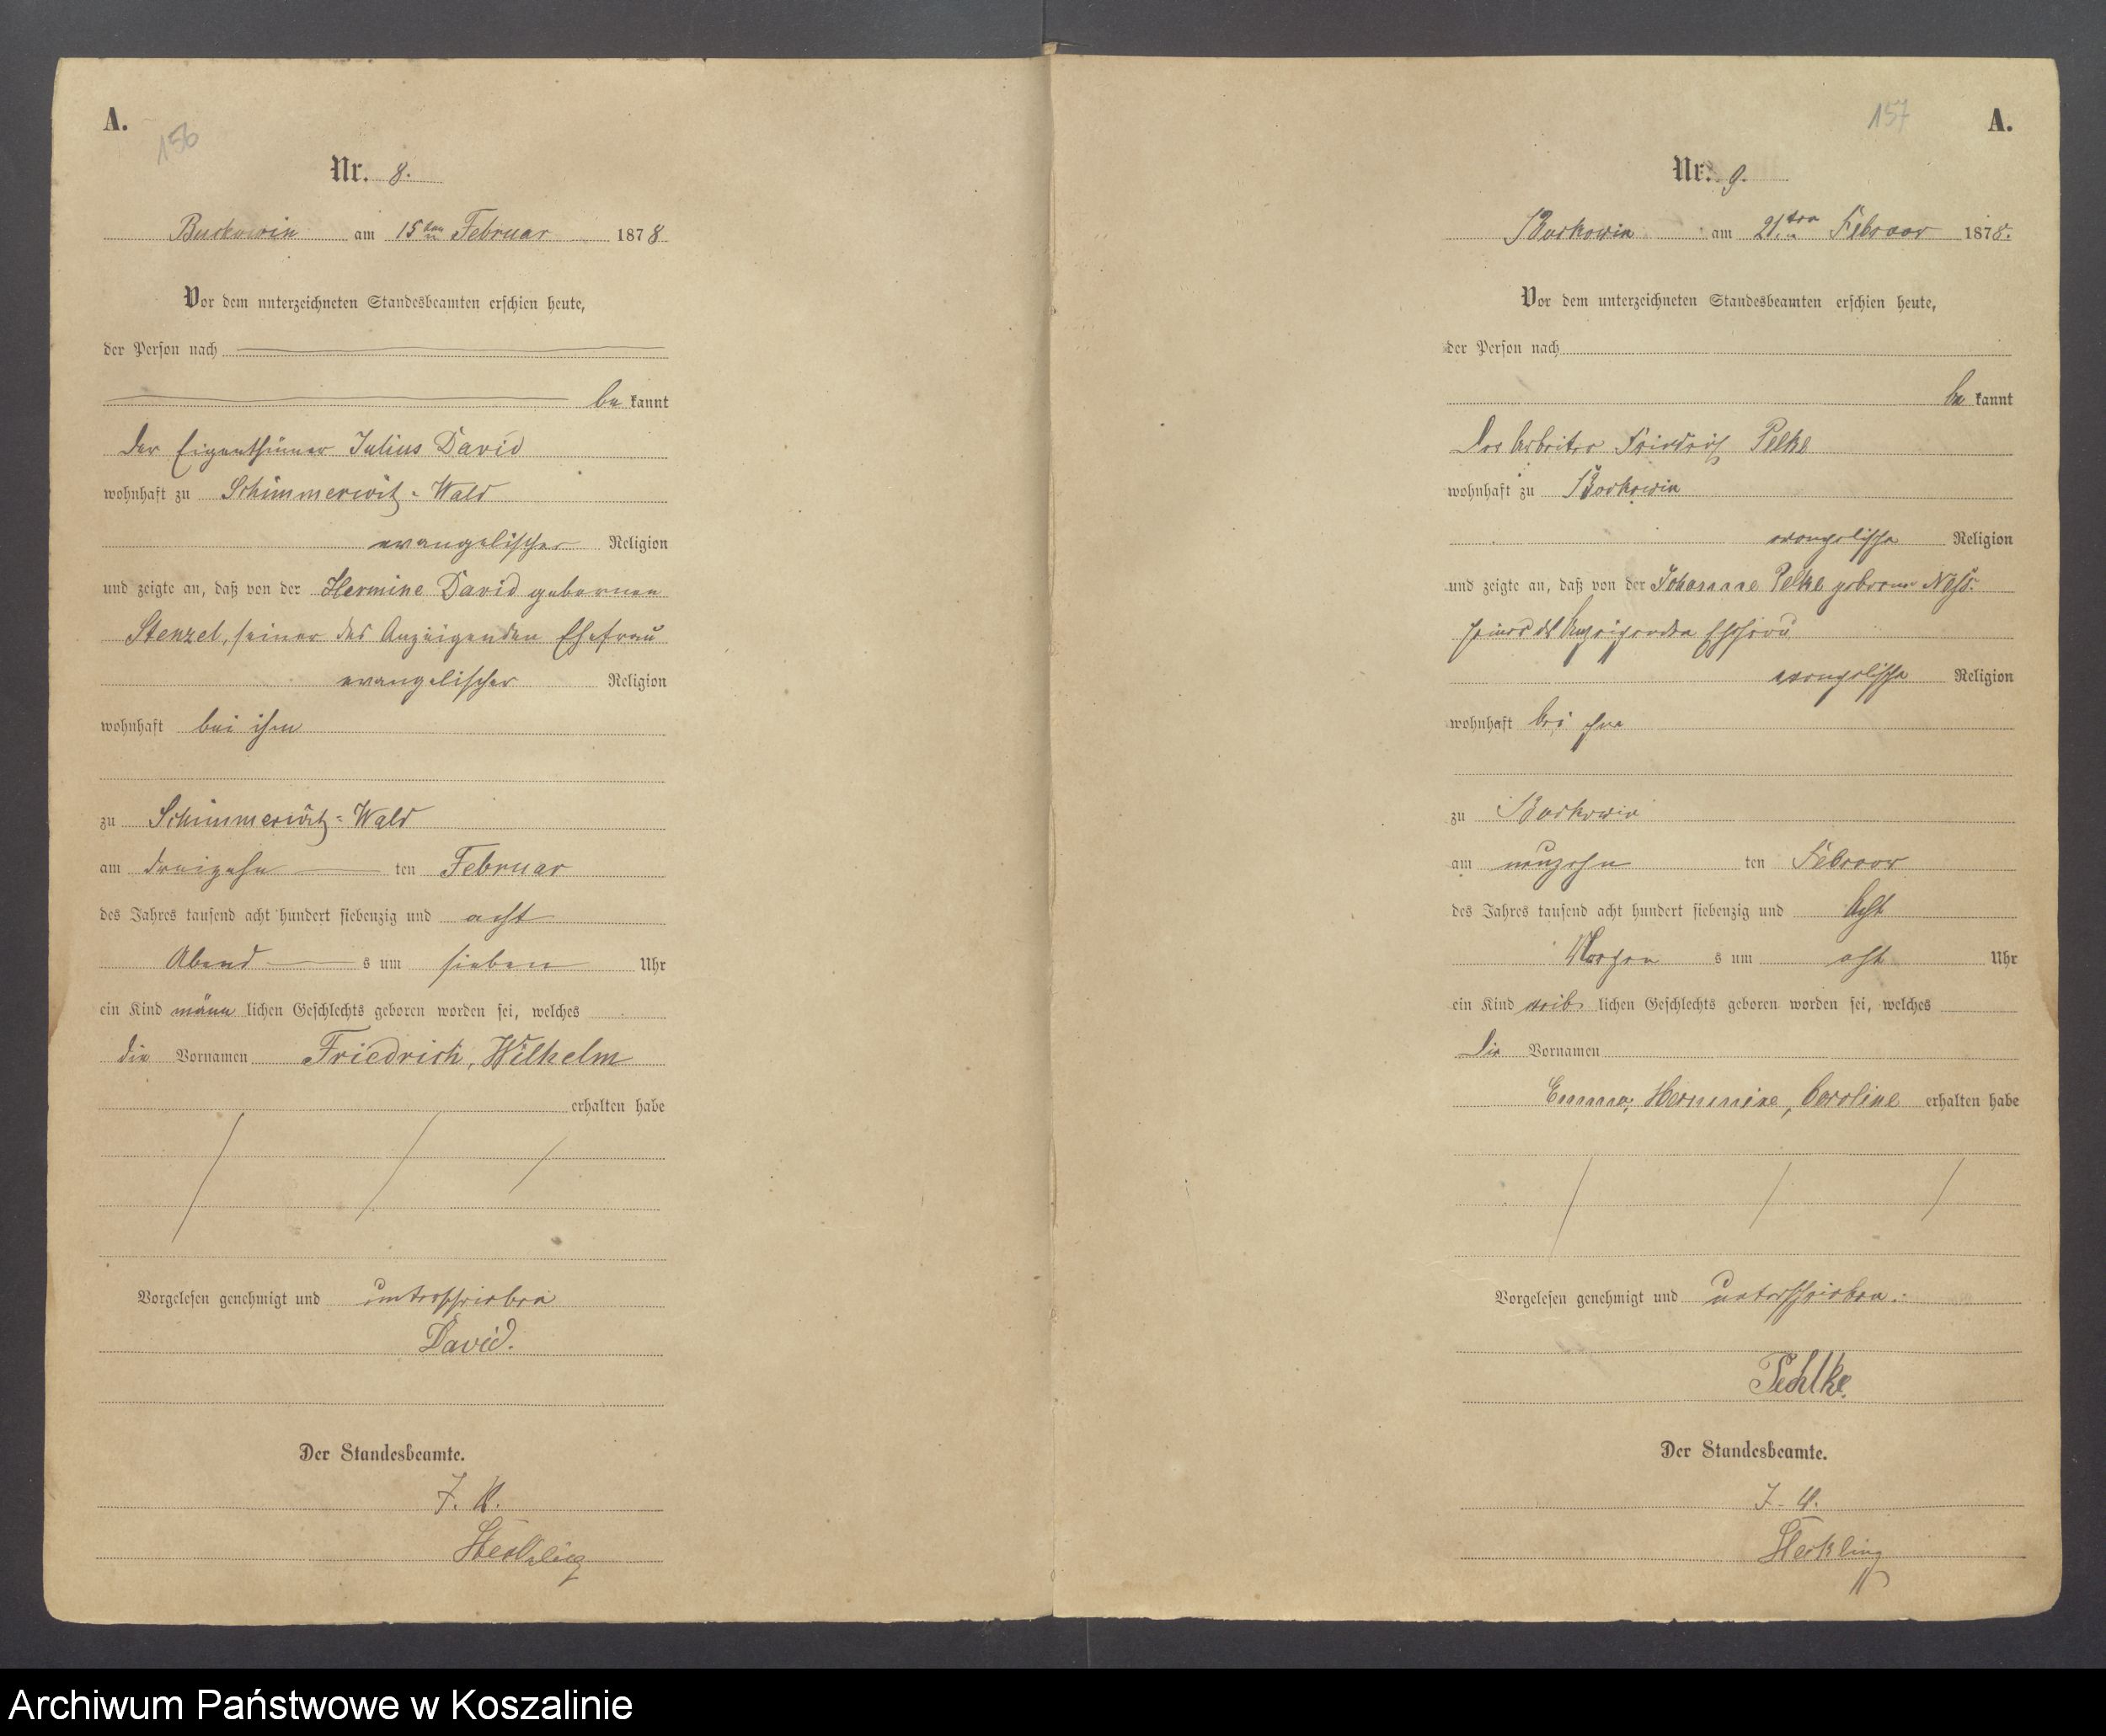 A.
156
Nr. 8.
Buckowin am 15ten Februar 1878
Vor dem unterzeichneten Standesbeamten erschien heute,
der Person nach
be kannt
der Eigenthümer Julius David
wohnhaft zu Schimmerwitz-Wald
evangelischer Religion
und zeigte an, daß von der Hermine David gebornen
Stenzel, seiner des Anzeigenden Ehefrau
evangelischer Religion
wohnhaft bei ihm
zu Schimmerwitz-Wald
am dreizehn ten Februar
des Jahres tausend acht hundert siebenzig und acht
Abend s um sieben Uhr
ein Kind männ lichen Geschlechts geboren worden sei, welches
die Vornamen Friedrich, Wilhelm
erhalten habe
Vorgelesen genehmigt und unterschrieben
David.
Der Standesbeamte.
J. V.
Heckling
157
A.
Nr. 9.
Buckowin am 21ten Februar 1878.
Vor dem unterzeichneten Standesbeamten erschien heute,
der Person nach
be kannt
Der Arbeiter Friedrich Pelke
wohnhaft zu Buckowin
evangelische Religion
und zeigte an, daß von der Johanne Pelke geborene
seiner des Anzeigenden Ehefrau
evangelische Religion
wohnhaft bei ihm
zu Buckowin
am neunzehn ten Februar
des Jahres tausend acht hundert siebenzig und Acht
Morgen s um acht Uhr
ein Kind weib lichen Geschlechts geboren worden sei, welches
Die Vornamen
Emma, Hermine, Caroline erhalten habe
Vorgelesen genehmigt und unterschrieben.
Pehlke.
Der Standesbeamte.
J. V.
Heckling
Archiwum Państwowe w Koszalinie